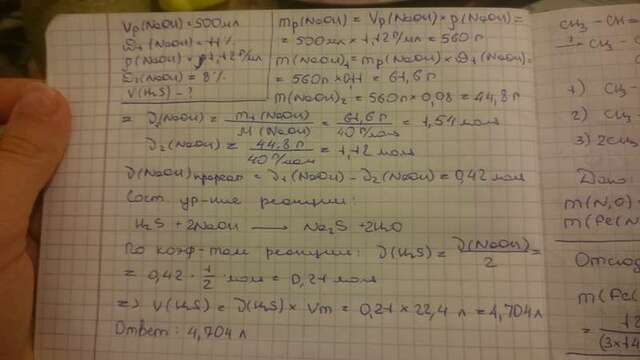 Vр(NaOH) = 500мл
ω1(NaOH) = 11%
ρ(NaOH) = 1,12г/мл
ω2(NaOH) = 8%
V(H2S) - ?
mр(NaOH) = Vр(NaOH) × ρ(NaOH) =
= 500мл × 1,12г/мл = 560г
m(NaOH)1 = mр(NaOH) × ω1(NaOH) =
= 560г × 0,11 = 61,6г
m(NaOH)2 = 560г × 0,08 = 44,8г
⇒ ν1(NaOH) = m1(NaOH) / M(NaOH) = 61,6г / 40г/моль = 1,54 моль
ν2(NaOH) = 44,8г / 40г/моль = 1,12 моль
ν(NaOH)прореаг = ν1(NaOH) - ν2(NaOH) = 0,42 моль
Сост. ур-ние реакции:
H2S + 2NaOH → Na2S + 2H2O
По коэф-там реакции: ν(H2S) = ν(NaOH) / 2 =
= 0,42 · 1/2 моль = 0,21 моль
⇒ V(H2S) = ν(H2S) × Vm = 0,21 × 22,4 л = 4,704л
Ответ: 4,704 л
CH3 - CH =
→ CH3 - C
1) CH
2) CH
3) 2CH
Дано:
m(N2O)
m(Fe(N
Отсюд
m(Fe(
= 12
(3×14